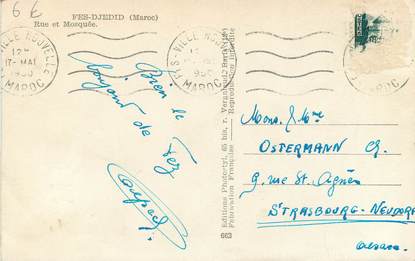 6 €
FES-DJEDID (Maroc)
Rue et Mosquée.
VILLE NOUVELLE
12H
17-MAI
1950
MAROC
FES-VILLE NOUVELLE
MAROC
Bien le
bonjour de Fez
Editions Photortyl, 65 bis, r.
Fabrication Française
Reproduction interdite
663
Mons. & Mme
OSTERMANN Ch.
9. rue St. Agnès
STRASBOURG-NEUDORF
Alsace.